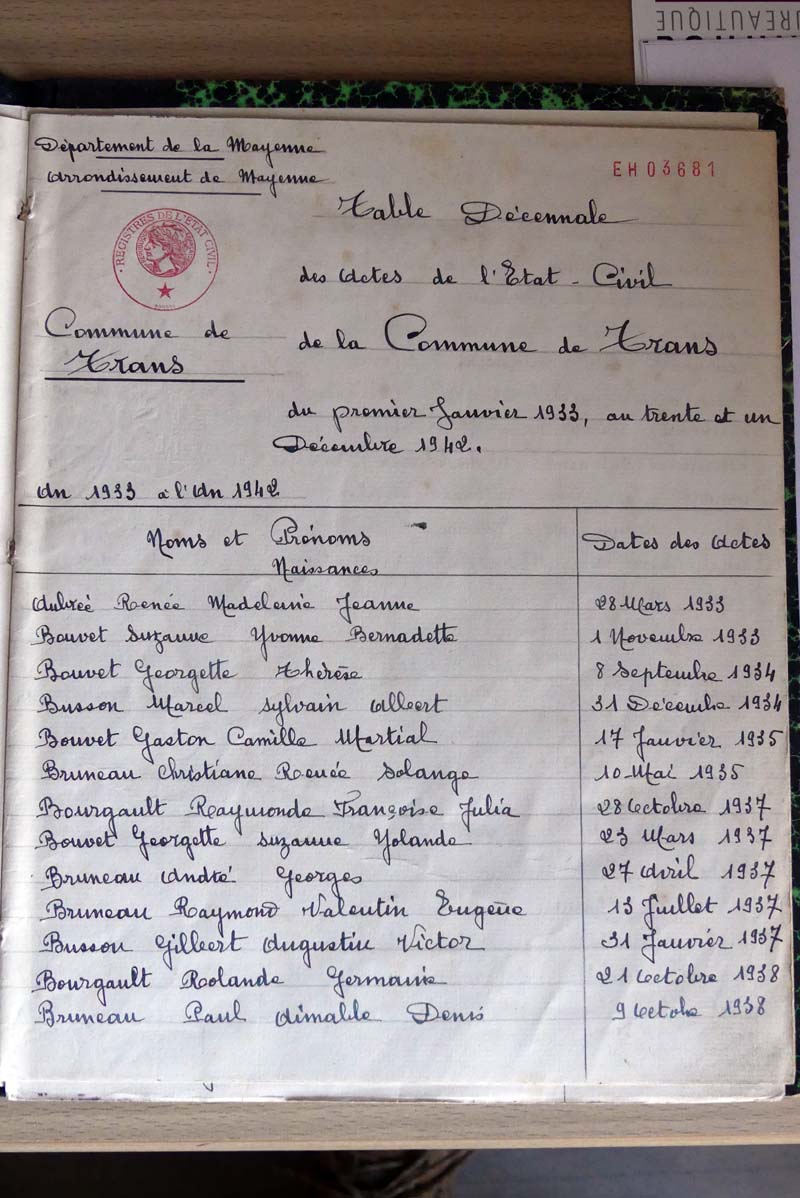 UREAUTIQUE
Département de la Mayenne
Arrondissement de Mayenne
EH03681
REGISTRES DE L'ETAT CIVIL
Table Décennale
des Actes de l'Etat-Civil
Commune de
Trans
de la Commune de Trans
du premier Janvier 1933, au trente et un
Décembre 1942.
An 1933 à l'An 1942
Noms et Prénoms
Dates des Actes
Naissances
Aubreé Renée Madeleine Jeanne 28 Mars 1933
Bouvet Suzanne Yvonne Bernadette 1 Novembre 1933
Bouvet Georgette Thérèse 8 Septembre 1934
Busson Marcel Sylvain Albert 31 Décembre 1934
Bouvet Gaston Camille Martial 17 Janvier 1935
Bruneau Christiane Renée Solange 10 Mai 1935
Bourgault Raymonde Françoise Julia 28 Octobre 1937
Bouvet Georgette Suzanne Yolande 23 Mars 1937
Bruneau André Georges 27 Avril 1937
Bruneau Raymond Valentin Eugène 13 Juillet 1937
Busson Gilbert Augustin Victor 31 Janvier 1937
Bourgault Rolande Germaine 21 Octobre 1938
Bruneau Paul Aimable Denis 9 Octobre 1938